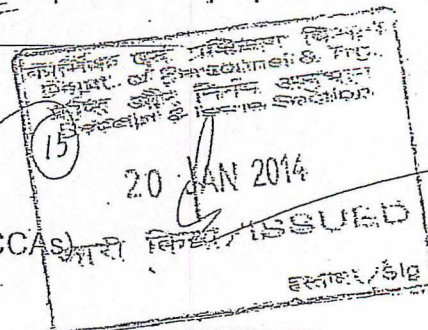 कार्मिक एवं प्रशिक्षण विभाग
Deptt. of Personnel & Trg.
Receipt & Issue Section
15
20 JAN 2014
CCAs)
जारी किया/ISSUED
हस्ता०/Sig